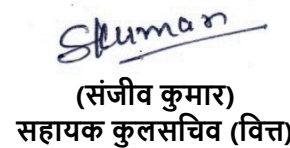 Skumar
(संजीव कुमार)
सहायक कुलसचिव (वित्त)